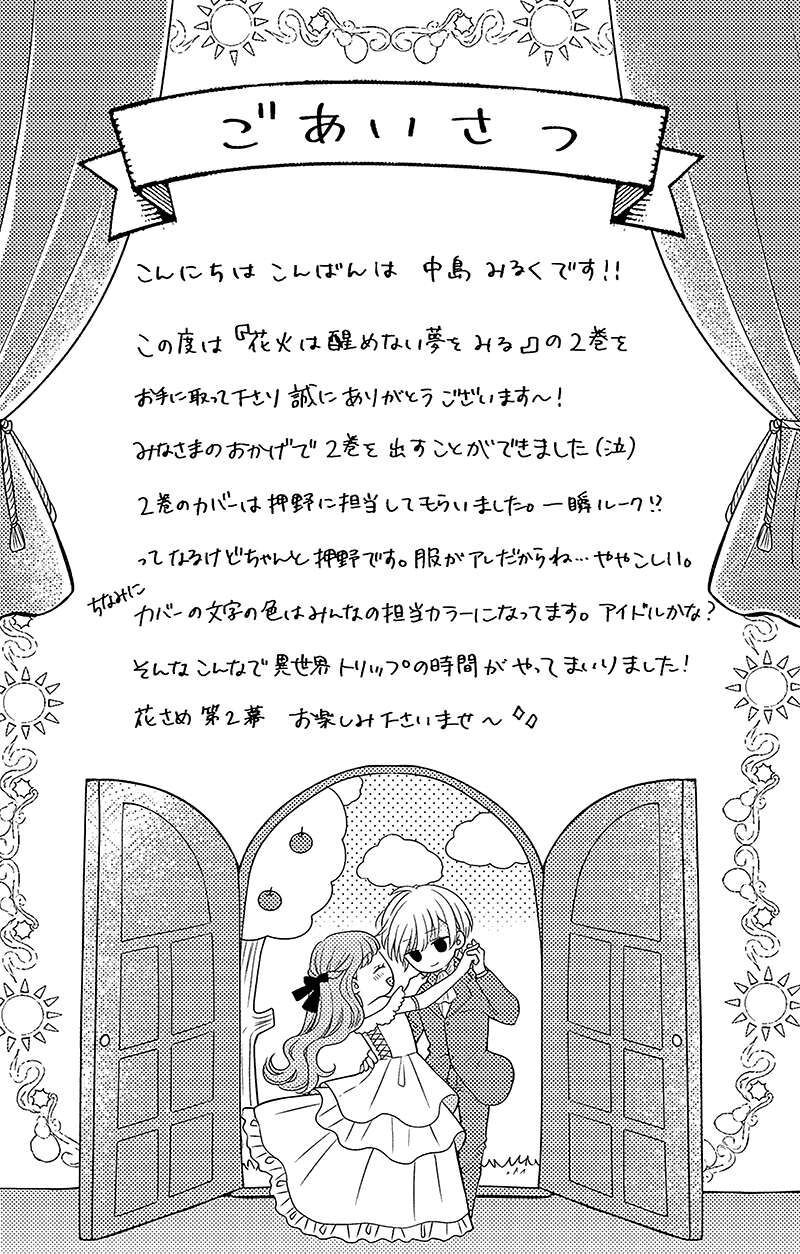 ごあいさつ
こんにちは こんばんは 中島 みるくです!!
この度は『花火は醒めない夢をみる』の2巻を
お手に取って下さり 誠にありがとうございます〜!
みなさまのおかげで2巻を出すことができました(泣)
2巻のカバーは押野に担当してもらいました。一瞬ルーク!?
ってなるけどちゃんと押野です。服がアレだからね…ややこしい。
ちなみに
カバーの文字の色はみんなの担当カラーになってます。アイドルかな?
そんなこんなで異世界トリップの時間がやってまいりました!
花さめ 第2幕 お楽しみ下さいませ〜